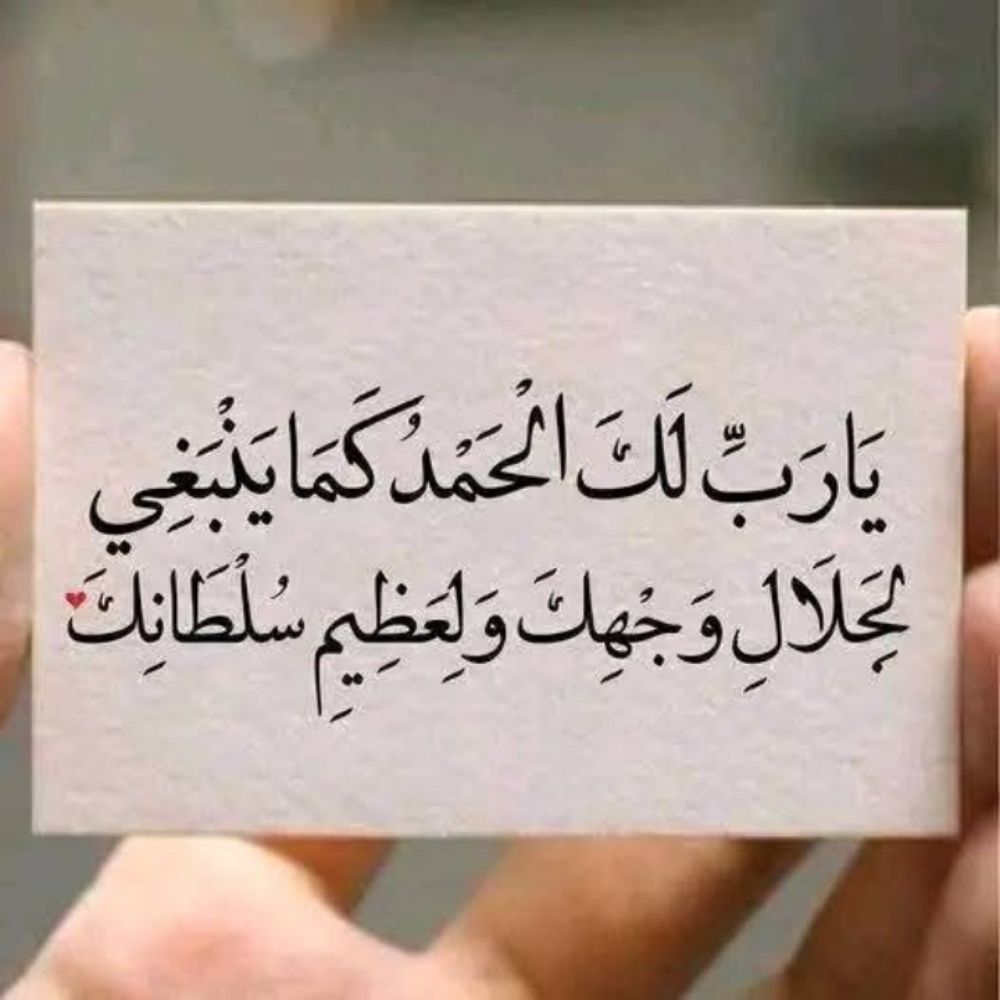 يَارَبِّ لَكَ الْحَمْدُ كَمَا يَنْبَغِي
لِجَلَالِ وَجْهِكَ وَلِعَظِيمِ سُلْطَانِكَ